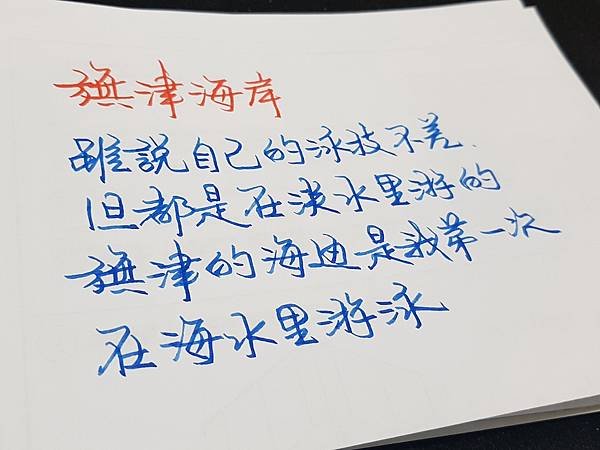 旗津海岸
雖說自己的泳技不差.
但都是在淡水里游的
旗津的海边是我第一次
在海水里游泳